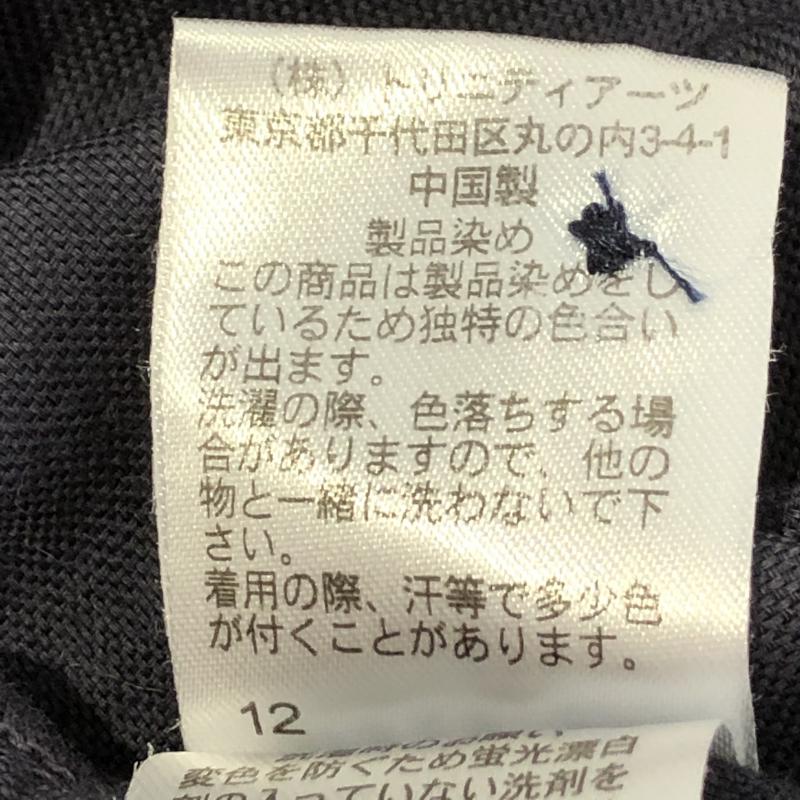 （株）トリニティアーツ
東京都千代田区丸の内3-4-1
中国製
製品染め
この商品は製品染めをし
ているため独特の色合い
が出ます。
洗濯の際、色落ちする場
合がありますので、他の
物と一緒に洗わないで下
さい。
着用の際、汗等で多少色
が付くことがあります。
12
変色を防ぐため蛍光漂白
剤の入っていない洗剤を